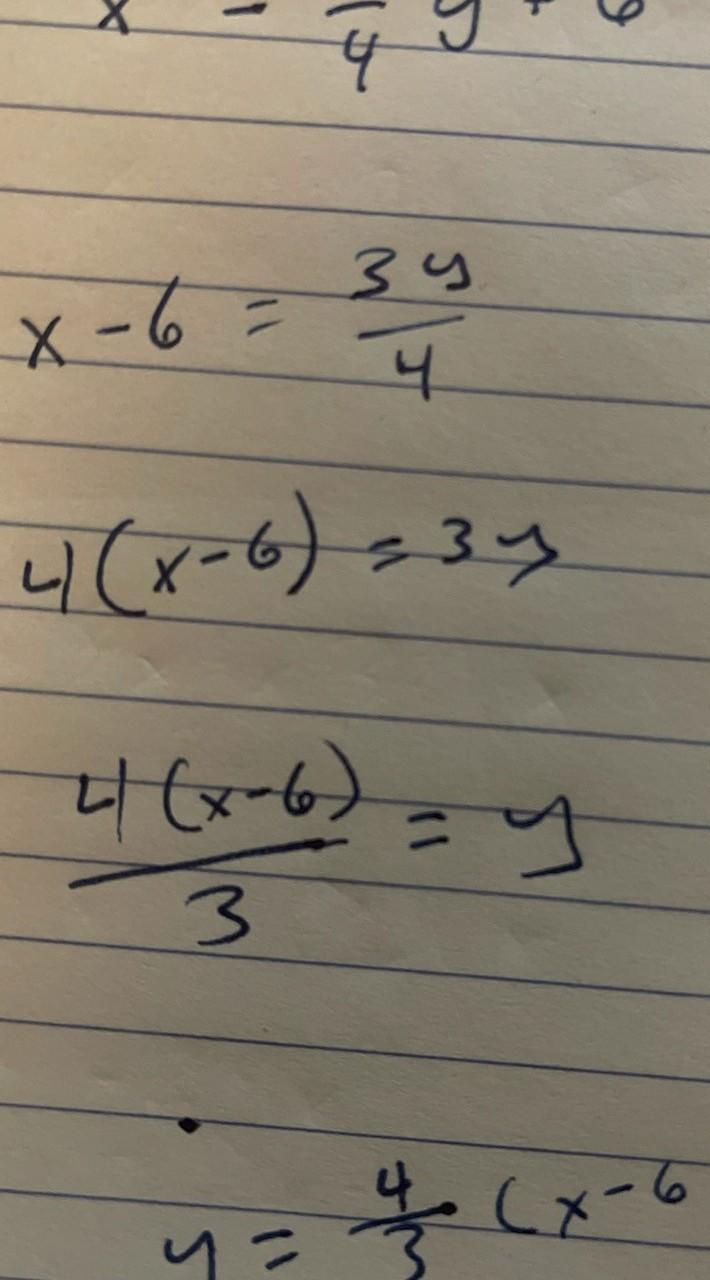 x = -/4 y + 6
x - 6 = 3y/4
4(x-6) = 3y
4(x-6)/3 = y
y = 4/3 (x-6